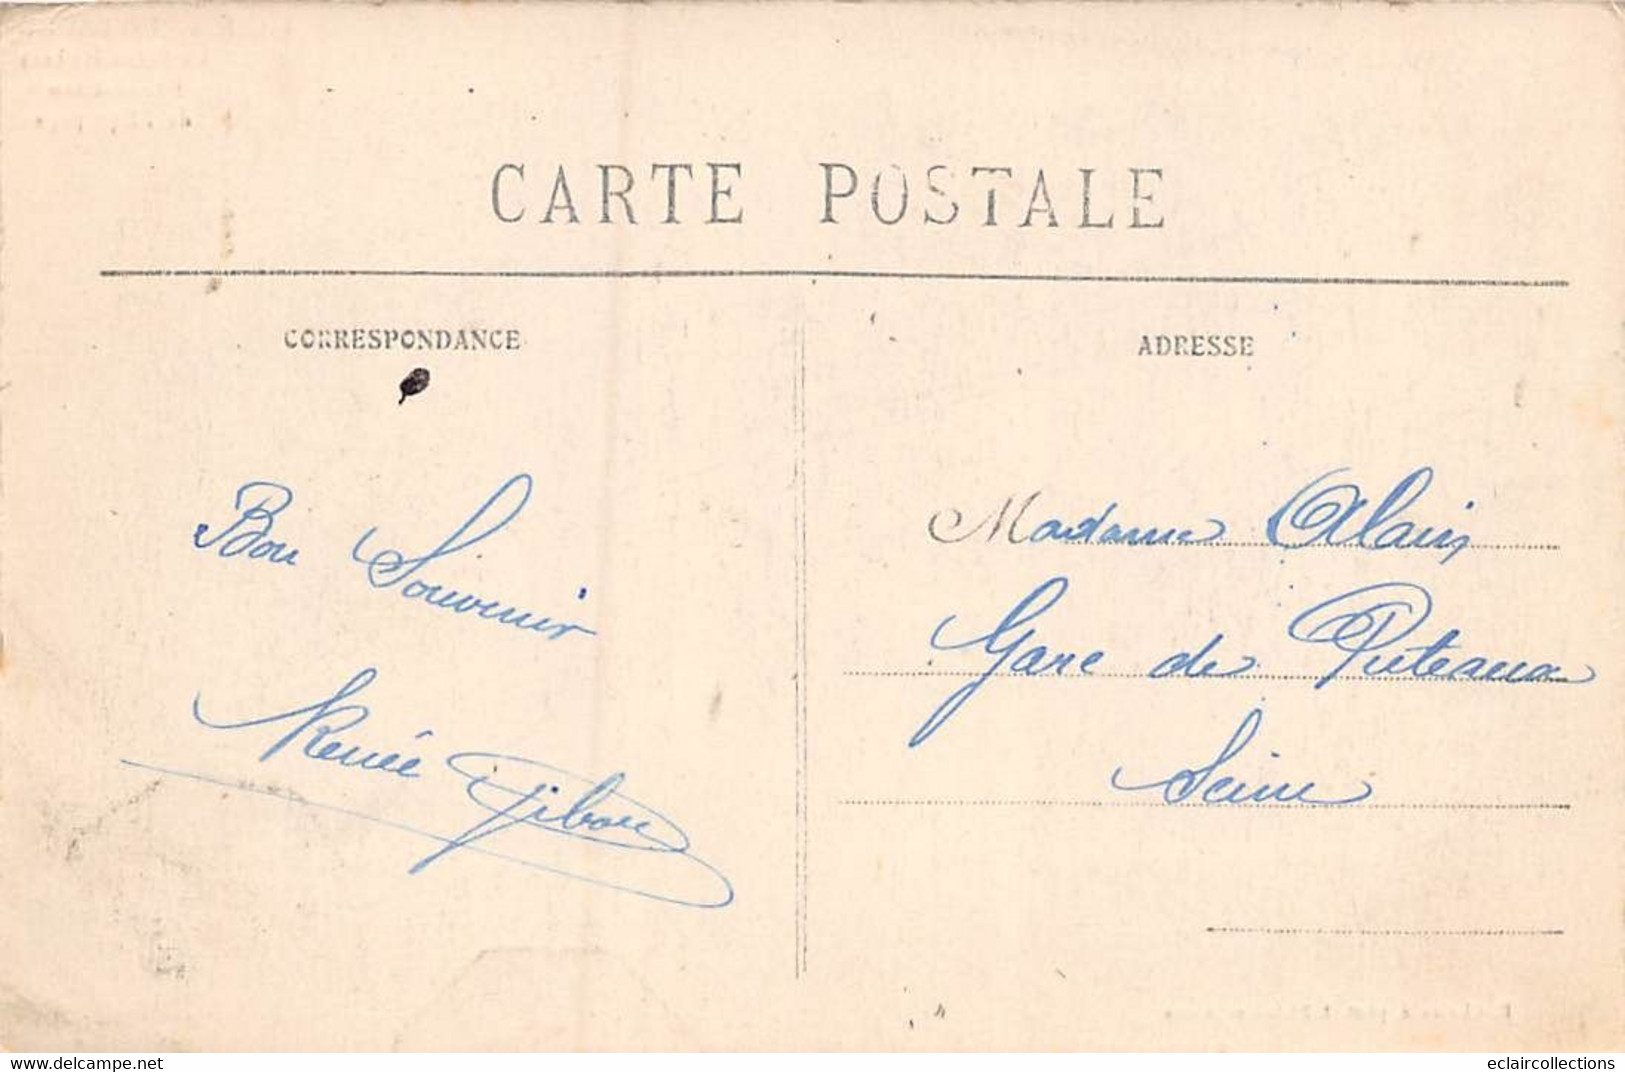 CARTE POSTALE
CORRESPONDANCE
ADRESSE
Bon Souvenir
Renée
Madame Alain
Gare de Puteaux
Seine
www.delcampe.net
eclaircollections